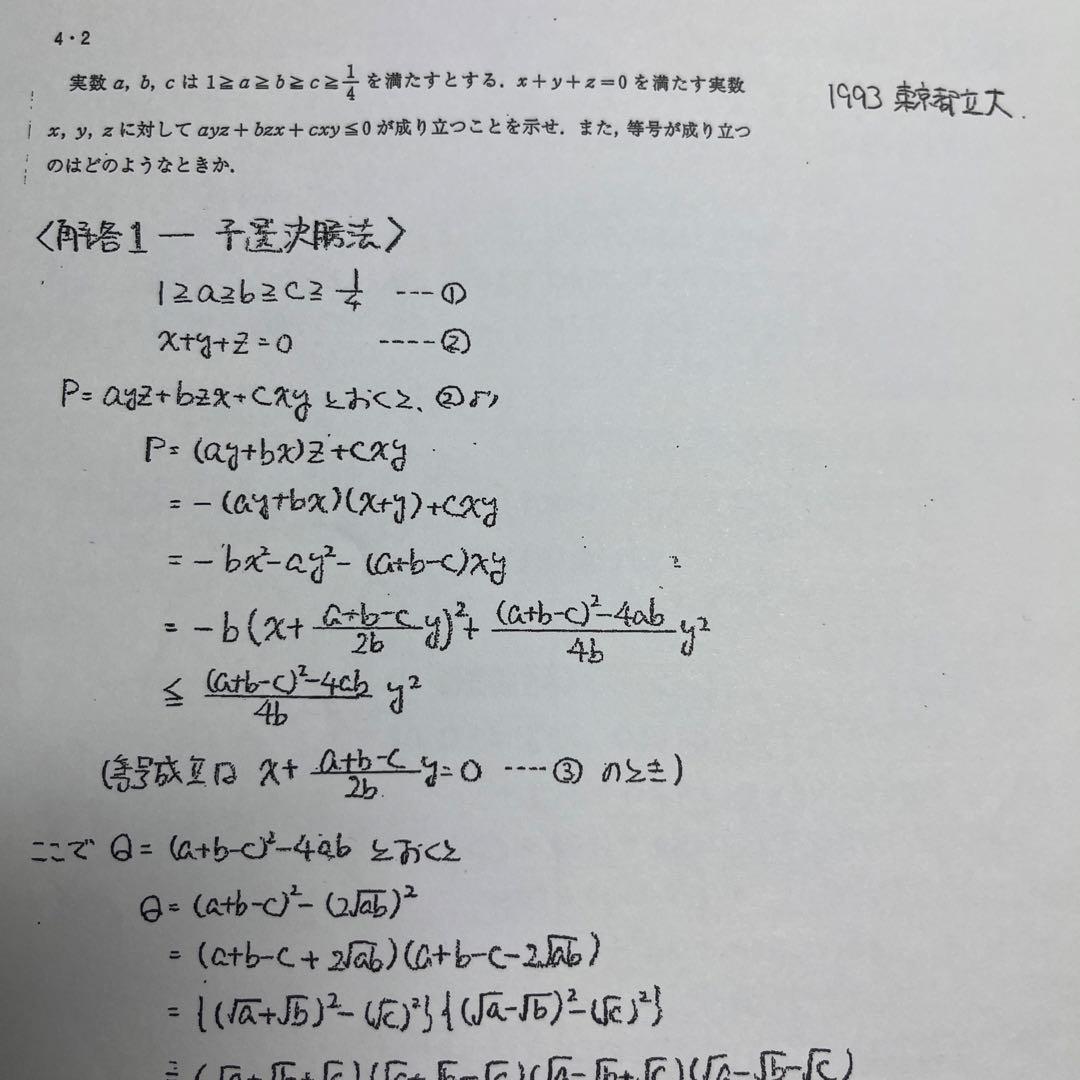 4・2
実数 a, b, c は 1≧a≧b≧c≧1/4 を満たすとする. x+y+z=0 を満たす実数
x, y, z に対して ayz+bzx+cxy≦0 が成り立つことを示せ. また, 等号が成り立つ
のはどのようなときか.
1993 東京都立大.
〈解答1 ― 予選決勝法〉
1≧a≧b≧c≧1/4 ---①
x+y+z=0 ----②
P=ayz+bzx+cxy とおくと、②より
P=(ay+bx)z+cxy
=-(ay+bx)(x+y)+cxy
=-bx²-ay²-(a+b-c)xy
=-b(x+(a+b-c)/2b y)²+((a+b-c)²-4ab)/4b y²
≦((a+b-c)²-4ab)/4b y²
(等号成立は x+(a+b-c)/2b y=0 ----③ のとき)
ここで Q=(a+b-c)²-4ab とおくと
Q=(a+b-c)²-(2√ab)²
=(a+b-c+2√ab)(a+b-c-2√ab)
={(√a+√b)²-(√c)²}{(√a-√b)²-(√c)²}
=(√a+√b+√c)(√a+√b-√c)(√a-√b+√c)(√a-√b-√c)